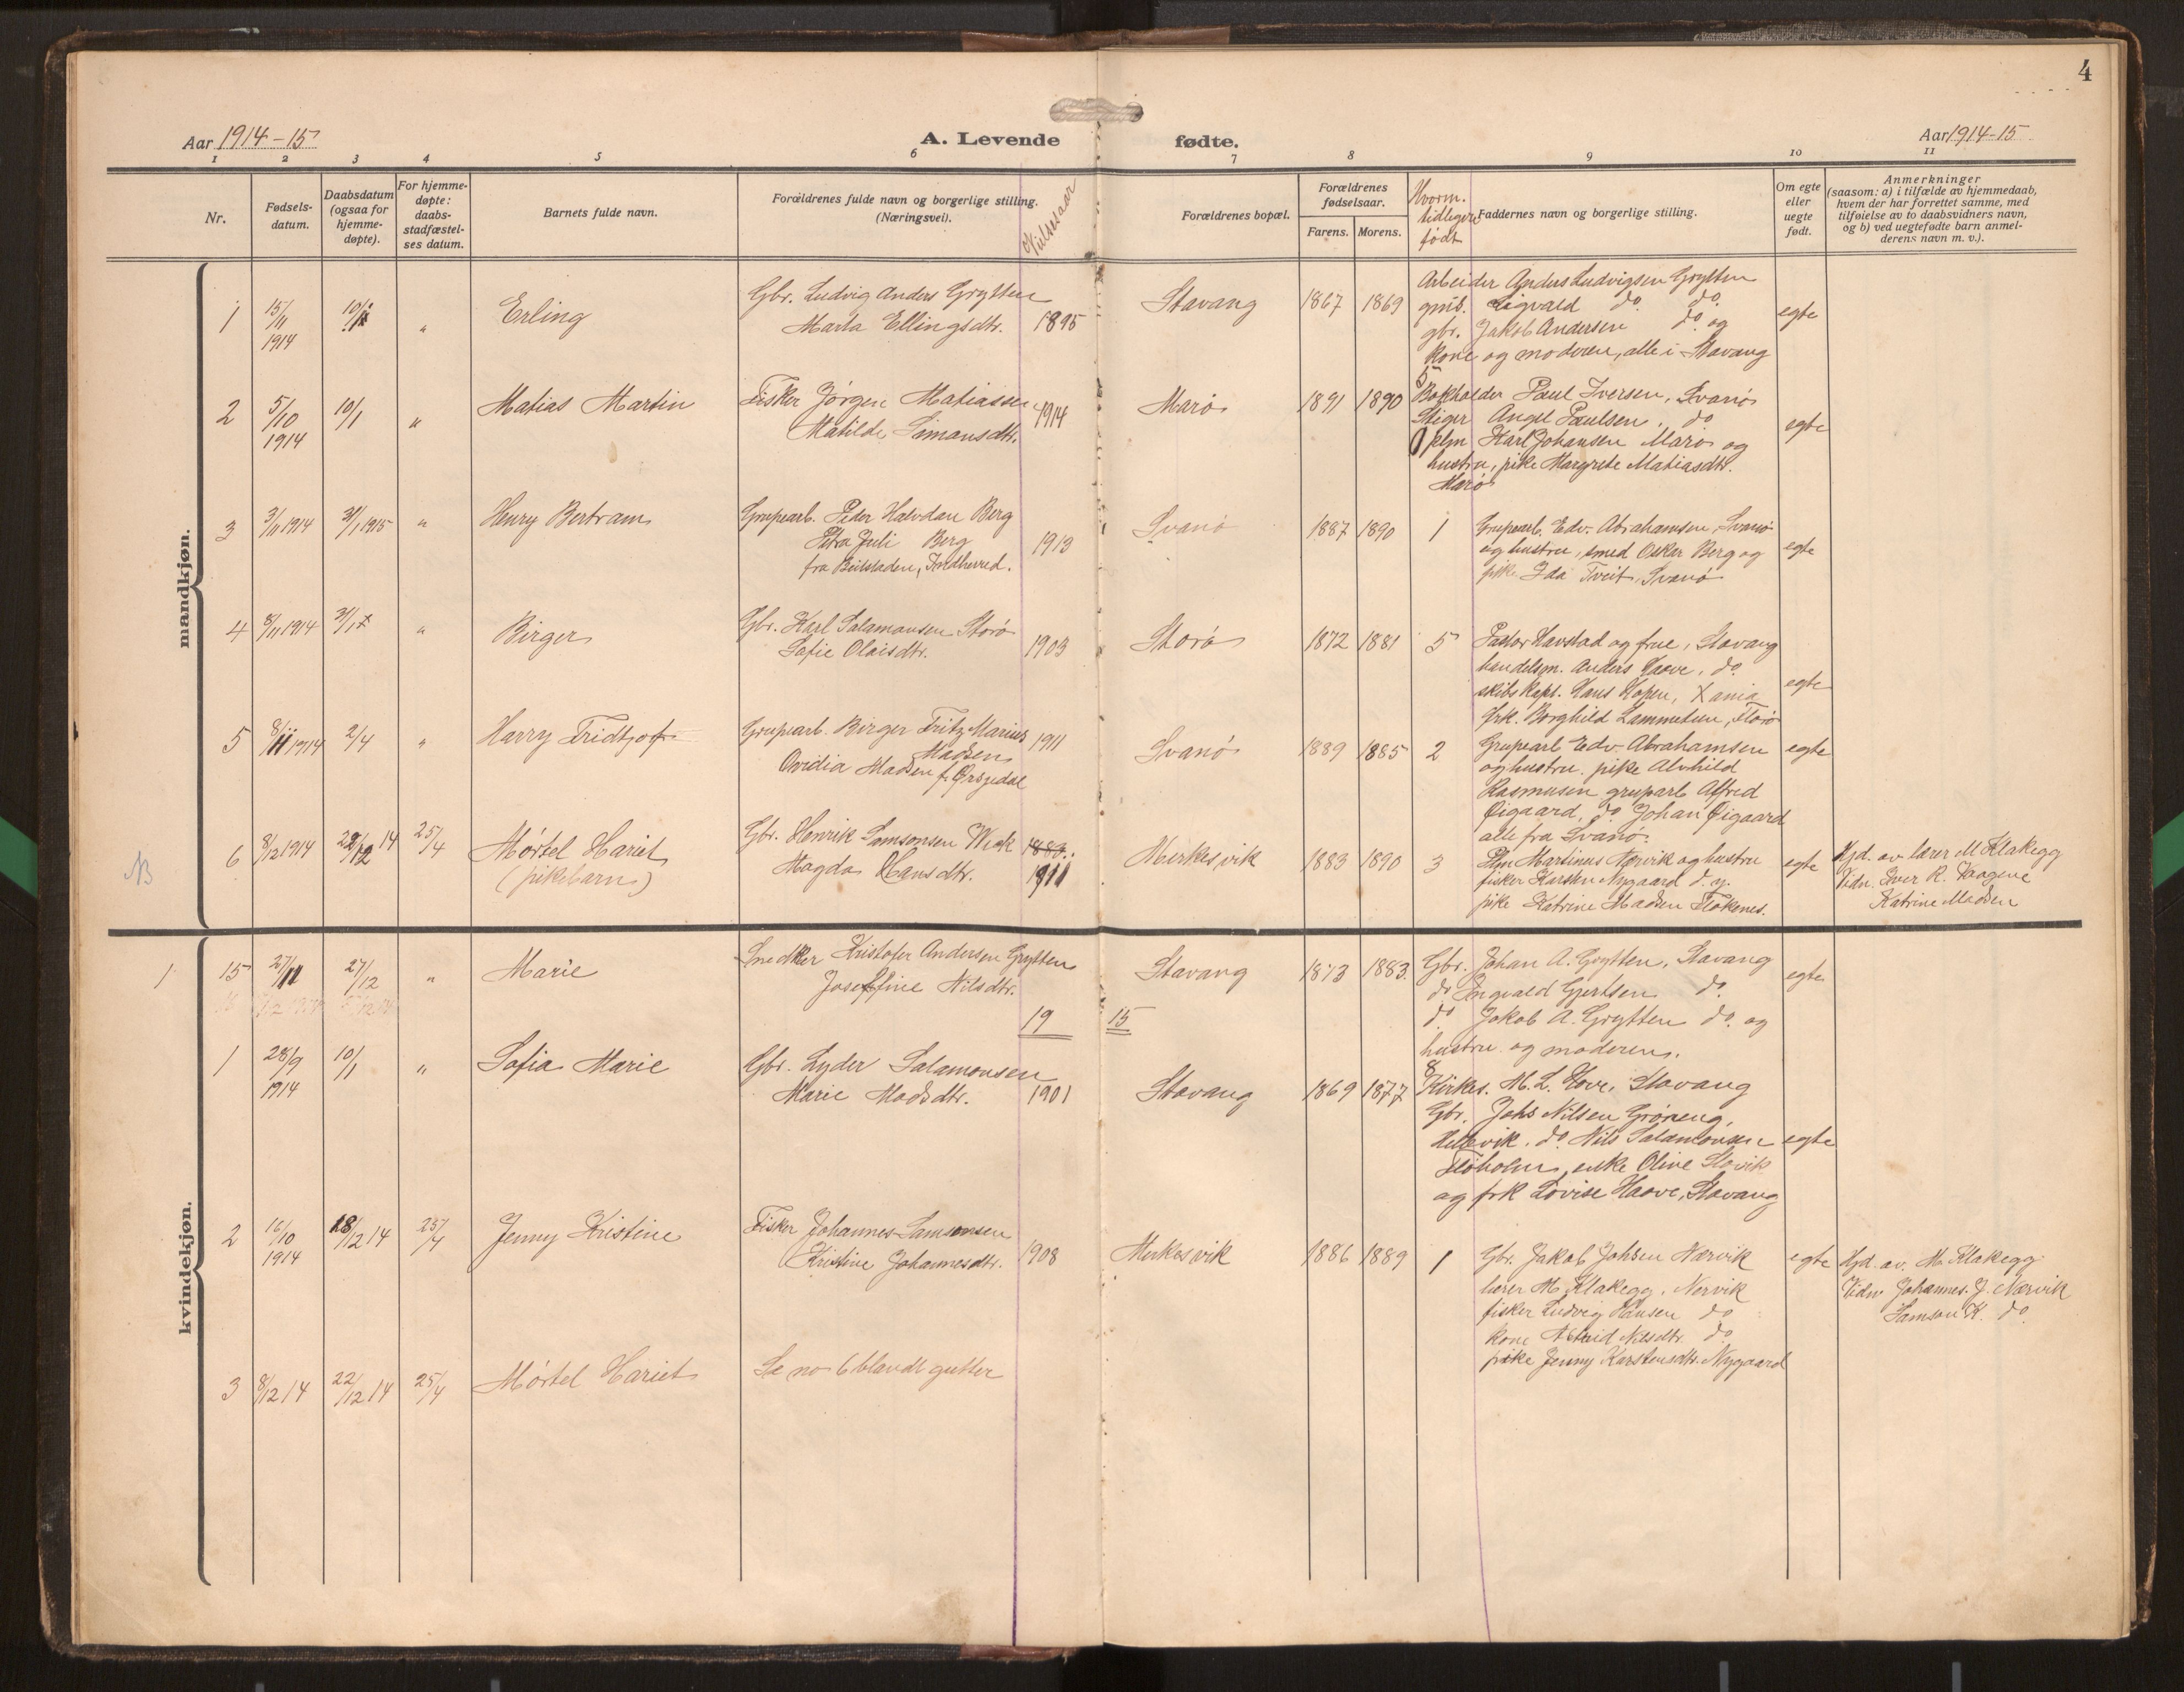 4
Aar 1914-15 A. Levende fødte. Aar 1914-15
1 2 3 4 5 6 7 8 9 10 11
Nr.
Fødsels-
datum.
Daabsdatum
(ogsaa for
hjemme-
døpte).
For hjemme-
døpte:
daabs-
stadfæstel-
ses datum.
Barnets fulde navn.
Forældrenes fulde navn og borgerlige stilling.
(Næringsvei).
Vielsesaar
Forældrenes bopæl.
Forældrenes
fødselsaar.
Farens. Morens.
Hvorm.
tidligere
født
Faddernes navn og borgerlige stilling.
Om egte
eller
uegte
født.
Anmerkninger
(saasom: a) i tilfælde av hjemmedaab,
hvem der har forrettet samme, med
tilføielse av to daabsvidners navn,
og b) ved uegtefødte barn anmel-
derens navn m. v.).
mandkjøn.
1 15/11 1914 10/1 " Erling
Gbr. Ludvig Anders Grytten
Marta Ellingsdtr. 1895
Stavang 1867 1869
Arbeider Anders Ludvigsen Grytten
gmb. Sigvald do do
gbr. Jakob Andersen do og
kone og moderen, alle i Stavang
egte
2 5/10 1914 10/1 " Matias Martin
Fisker Jørgen Matiassen
Matilde Simonsdtr. 1914
Marø 1891 1890
5
Bokholder Paul Iversen, Svanø
Stiger Angel Paulsen, do
plm Karl Johansen Marø og
hustru, pike Margrete Matiasdtr.
Marø
egte
3 3/11 1914 31/1 1915 " Henry Bertram
Grupearb. Peder Halvdan Berg
Petra Juli Berg
fra Beitstaden, Indherred. 1913
Svanø 1887 1890 1
Grupearb. Edv. Abrahamsen, Svanø
og hustru, smed Oskar Berg og
pike Ida Tveit, Svanø
egte
4 8/11 1914 31/1 " Birger
Gbr. Karl Salamonsen Storø
Sofie Olaisdtr. 1903
Storø 1872 1881 5
Pastor Havstad og frue, Stavang
handelsm. Anders Haave, do
skibskapt. Hans Hopen, Xania
frk. Borghild Lammetun, Florø
egte
5 8/11 1914 2/4 " Harry Fridtjof
Grupearb. Birger Fritz Marius
Madsen
Ovidia Madsen f. Ørsjedal 1911
Svanø 1889 1885 2
Grupearb Edv. Abrahamsen
og hustru. pike Alvhild
Rasmusen gruparb Alfred
Øigaard, do Johan Øigaard
alle fra Svanø.
egte
NB
6 8/12 1914 22/12 14 25/4 Mórtel Hariet
(pikebarn)
Gbr. Henrik Samsonsen Wiek 1883
Magda Hansdtr. 1911
Merkesvik 1883 1890 3
Plm Martinus Nærvik og hustru
fisker Karsten Nygaard d. y.
pike Katrine Madsen Flokenes.
egte
Hjd. av lærer M Klakegg
Vidn. Iver R. Vaagene
Katrine Madsen
kvindekjøn.
1 15 27/11 27/12 " Marie
Snedker Kristofer Andersen Grytten
Joseffine Nilsdtr.
Stavang 1873 1883.
Gbr. Johan A. Grytten, Stavang
do Ingvald Gjertsen do
do Jakob A. Grytten do. og
hustru og moderen.
egte
19 15
1 28/9 1914 10/1 " Sofia Marie
Gbr. Lyder Salamonsen
Marie Madsdtr. 1901
Stavang 1869 1877
8
Kirkes. M. L. Hove, Stavang
Gbr. Johs Nilsen Grøneng,
Hellevik, do Nils Salamonsen
enke Oline Stavik
og frk Lovise Haave, Stavang
egte
2 16/10 1914 28/12 14 25/4 Jenny Kristine
Fisker Johannes Samsonsen
Kristine Johannesdtr. 1908
Merkesvik 1886 1889 1
Gbr. Jakob Johsen Nærvik
lærer M. Klakegg, Nervik
fisker Ludvig Hansen do
kone Astrid Nilsdtr. do
pike Jenny Karstensdtr. Nygaard
egte
Hjd. av. M. Klakegg
Vidn Johannes J. Nærvik
Samson K. do
3 8/12 14 22/12 14 25/4 Mórtel Hariet
Se no 6 blandt gutter